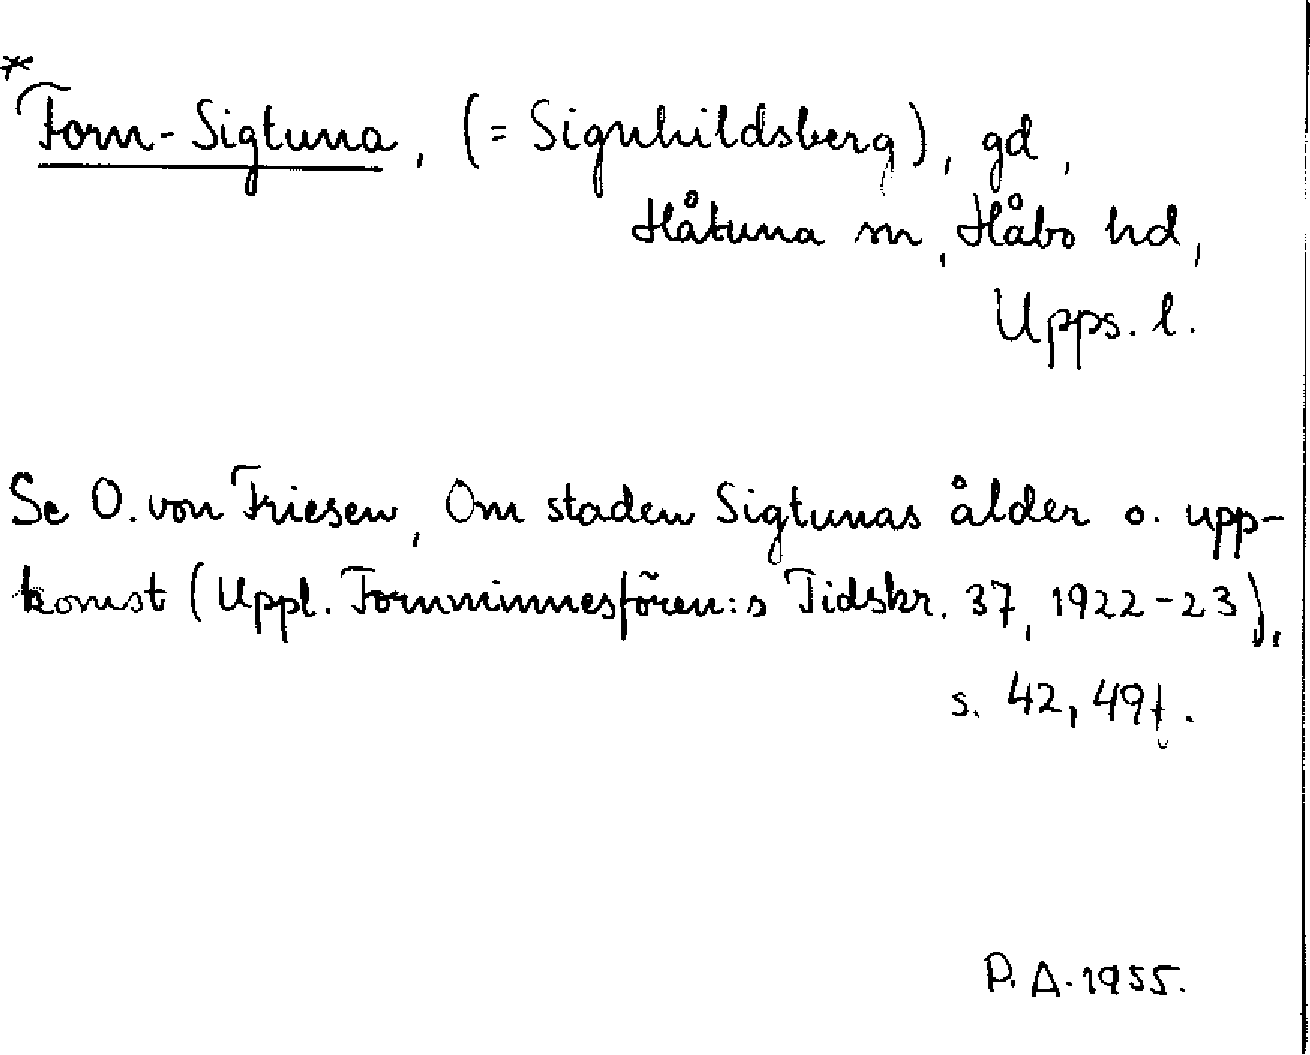 *
Forn-Sigtuna, (= Signhildsberg), gd,
Håtuna sn, Håbo hd,
Upps. l.
Se O. von Friesen, Om staden Sigtunas ålder o. upp-
komst (Uppl. Fornminnesfören:s Tidskr. 37, 1922-23),
s. 42, 49f.
P. A. 1955.